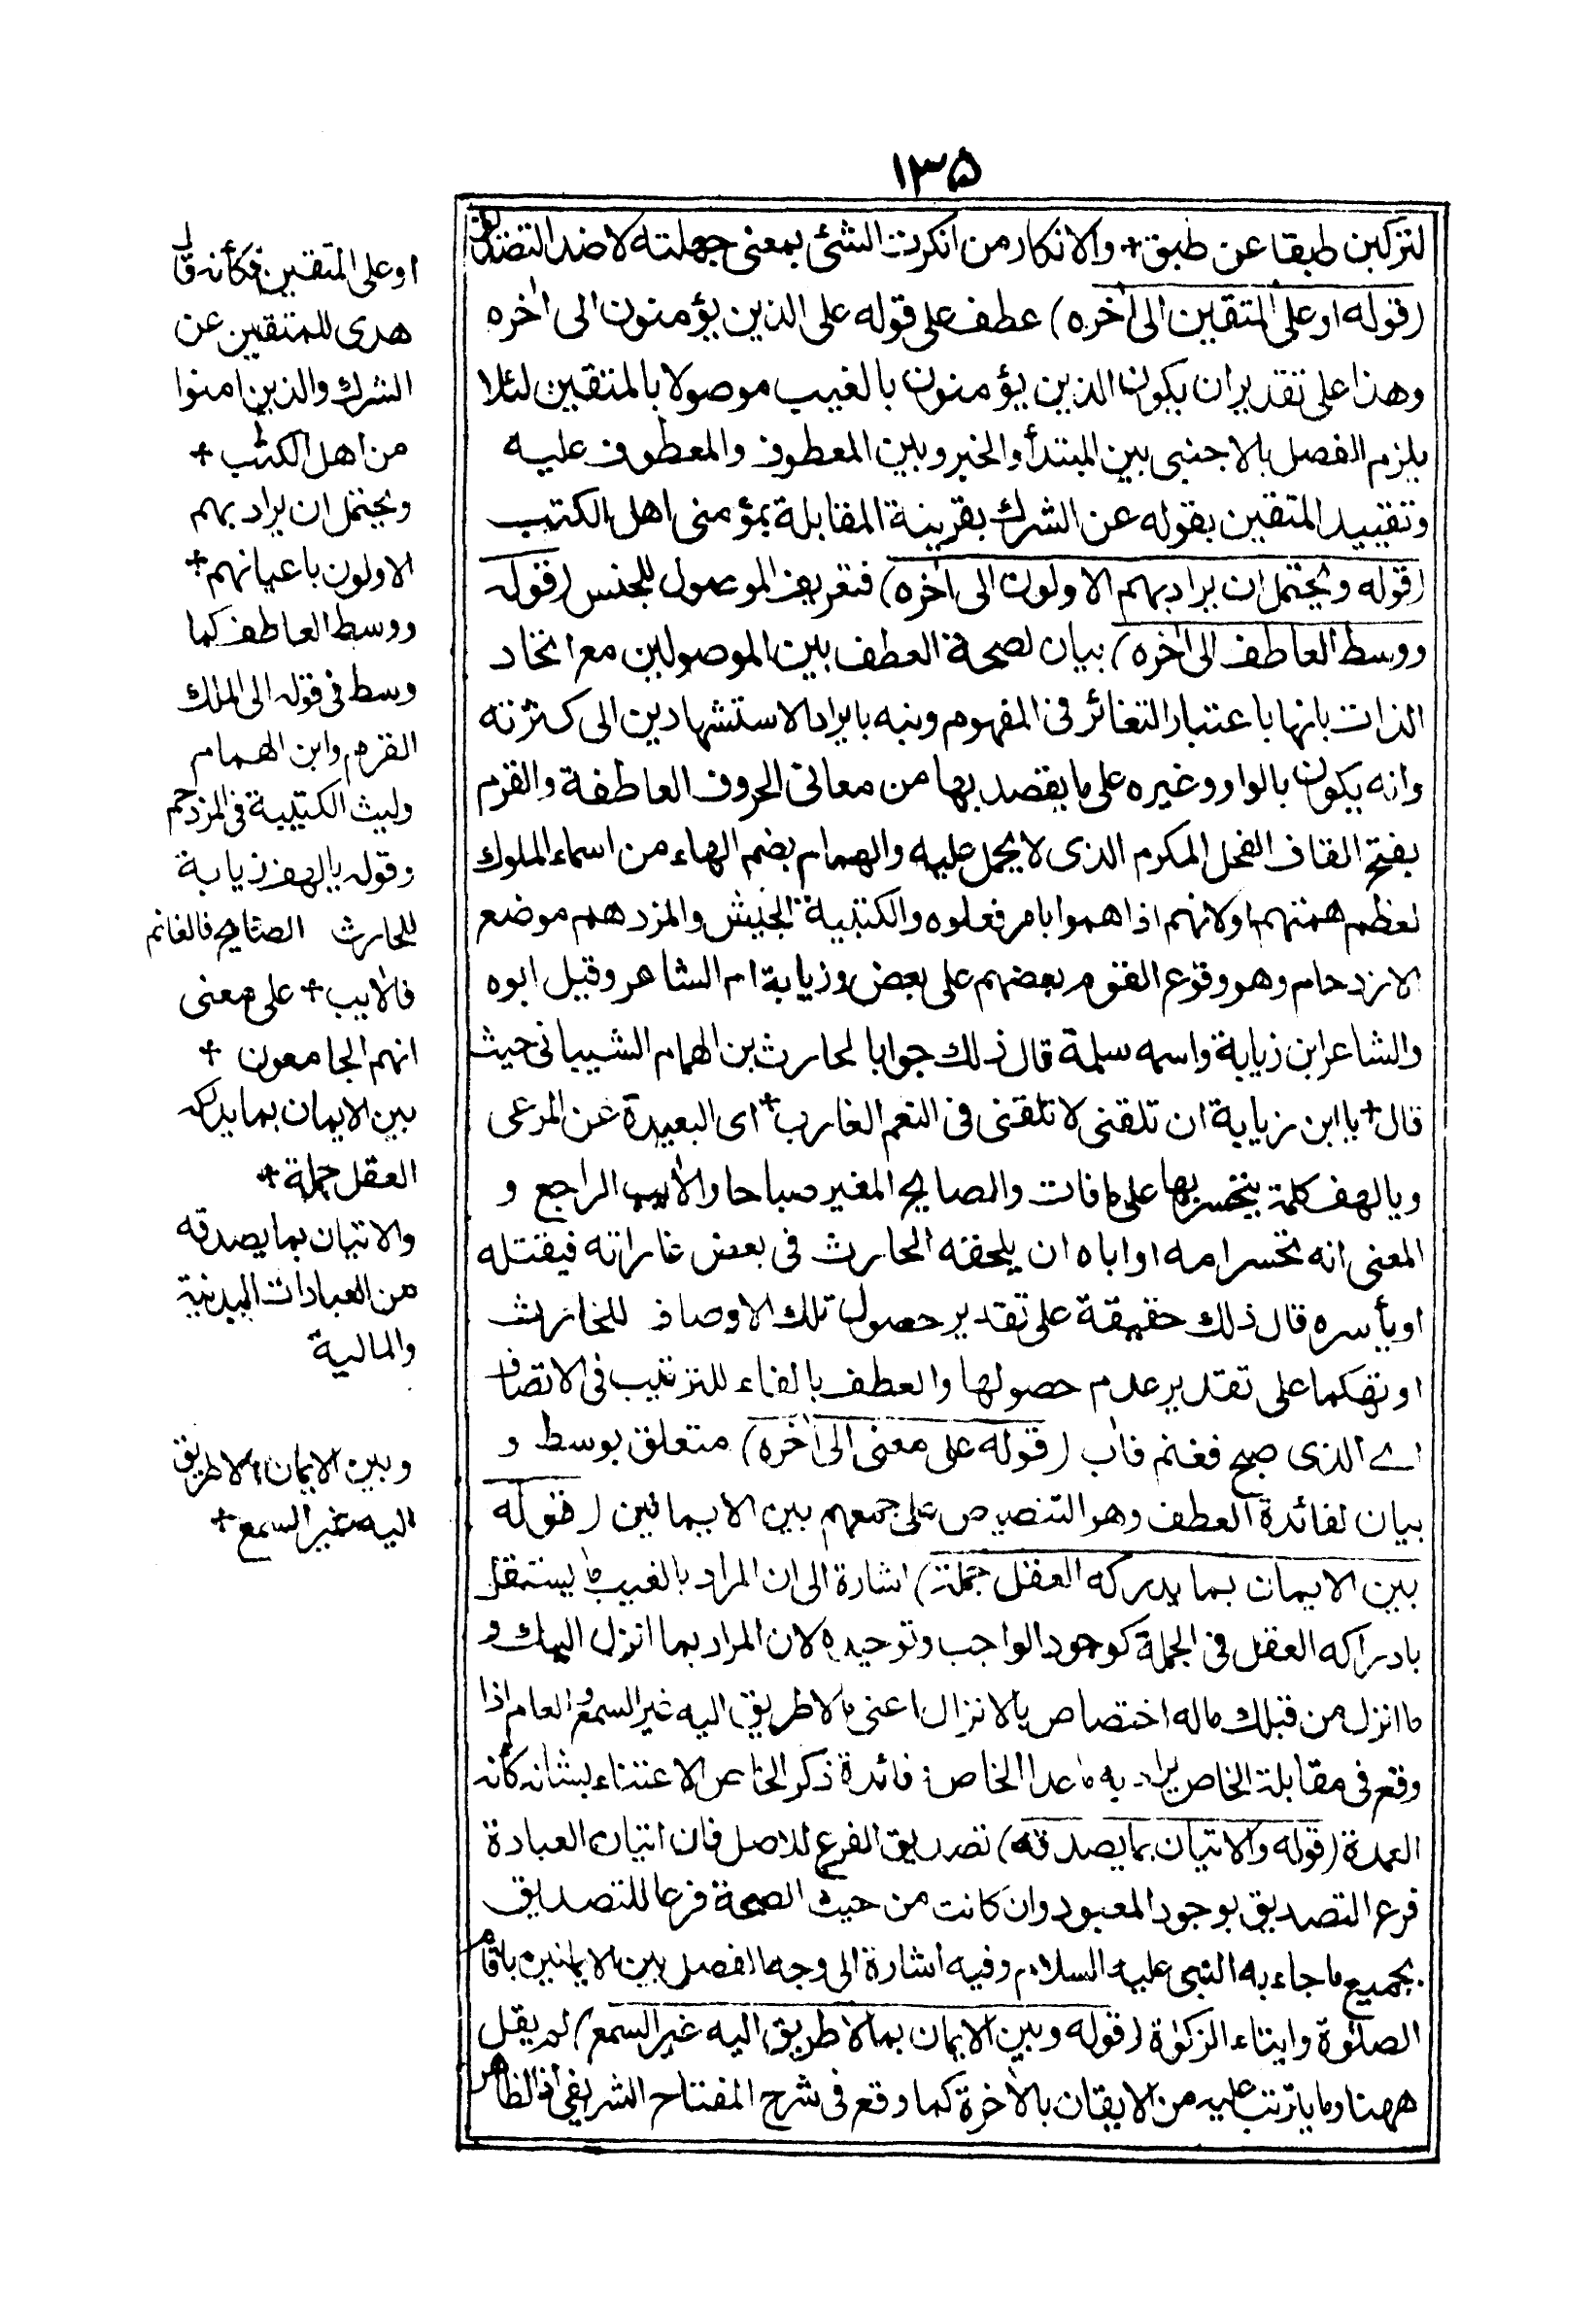 ١٣٥
لتركبن طبقا عن طبق+ والانكار من انكرت الشئ بمعنى جهلته لا ضد التصديق
(قوله او على المتقين الى اخره) عطف على قوله على الذين يؤمنون الى اخره
وهذا على تقدير ان يكون الذين يؤمنون بالغيب موصولا بالمتقين لئلا
يلزم الفصل بالاجنبى بين المبتدأ والخبر وبين المعطوف والمعطوف عليه
وتقييد المتقين بقوله عن الشرك بقرينة المقابلة بمؤمنى اهل الكتب
(قوله ويحتمل ان يراد بهم الاولون الى اخره) فتعريف الموصول للجنس (قوله
ووسط العاطف الى اخره) بيان لصحة العطف بين الموصولين مع اتحاد
الذات بانها باعتبار التغائر فى المفهوم ونبه بايراد الاستشهادين الى كثرته
وانه يكون بالواو وغيره على ما يقصد بها من معانى الحروف العاطفة والقرم
بفتح القاف الفحل المكرم الذى لا يحمل عليه والهمام بضم الهاء من اسماء الملوك
لعظم همتهم او لانهم اذا هموا بامر فعلوه والكتيبة الجيش والمزدحم موضع
الازدحام وهو وقوع القوم بعضهم على بعض وزيابة ام الشاعر وقيل ابوه
والشاعر ابن زيابة واسمه سلمة قال ذلك جوابا لحارث بن الهمام الشيبانى حيث
قال+ يا ابن زيابة ان تلقنى لا تلقنى فى النعم الغارب+ اى البعيدة عن المرعى
ويالهف كلمة يتحسر بها على ما فات والصابح المغير صباحا والأيب الراجع و
المعنى انه تحسر امه او اباه ان يلحقه الحارث فى بعض غاراته فيقتله
او يأسره قال ذلك حقيقة على تقدير حصول تلك الاوصاف للحارث
او تهكما على تقدير عدم حصولها والعطف بالفاء للترتيب فى الاتصاف
اے الذى صبح فغنم فاب (قوله على معنى الى اخره) متعلق بوسط و
بيان لفائدة العطف وهو التنصيص على جمعهم بين الايمانين (قوله
بين الايمان بما يدركه العقل جملة) اشارة الى ان المراد بالغيب ما يستقل
بادراكه العقل فى الجملة كوجود الواجب وتوحيده لان المراد بما انزل اليك و
ما انزل من قبلك ماله اختصاص بالانزال اعنى ما لا طريق اليه غير السمع والعام اذا
وقع فى مقابلة الخاص يراد به ما عدا الخاص فائدة ذكر الخاص الاعتناء بشانه كأنه
العمدة (قوله والاتيان بما يصدقه) تصديق الفرع للاصل فان اتيان العبادة
فرع التصديق بوجود المعبود وان كانت من حيث الصحة فرعا للتصديق
بجميع ما جاء به النبى عليه السلام وفيه اشارة الى وجه الفصل بين الايمانين باقام
الصلوة وايتاء الزكوة (قوله وبين الايمان بما لا طريق اليه غير السمع) لم يقل
ههنا وما يترتب عليه من الايقان بالأخرة كما وقع فى شرح المفتاح الشريفى اذ الظاهر
او على المتقين فكأنه قال
هدى للمتقين عن
الشرك والذين امنوا
من اهل الكتب +
ويحتمل ان يراد بهم
الاولون باعيانهم+
ووسط العاطف كما
وسط فى قوله الى الملك
القرم وابن الهمام
وليث الكتيبة فى المزدحم
وقوله يالهف زيابة
للحارث الصابح فالغانم
فالايب+ على معنى
انهم الجامعون +
بين الايمان بما يدركه
العقل جملة+
والاتيان بما يصدقه
من العبادات البدنية
والمالية
وبين الايمان بما لا طريق
اليه غير السمع+